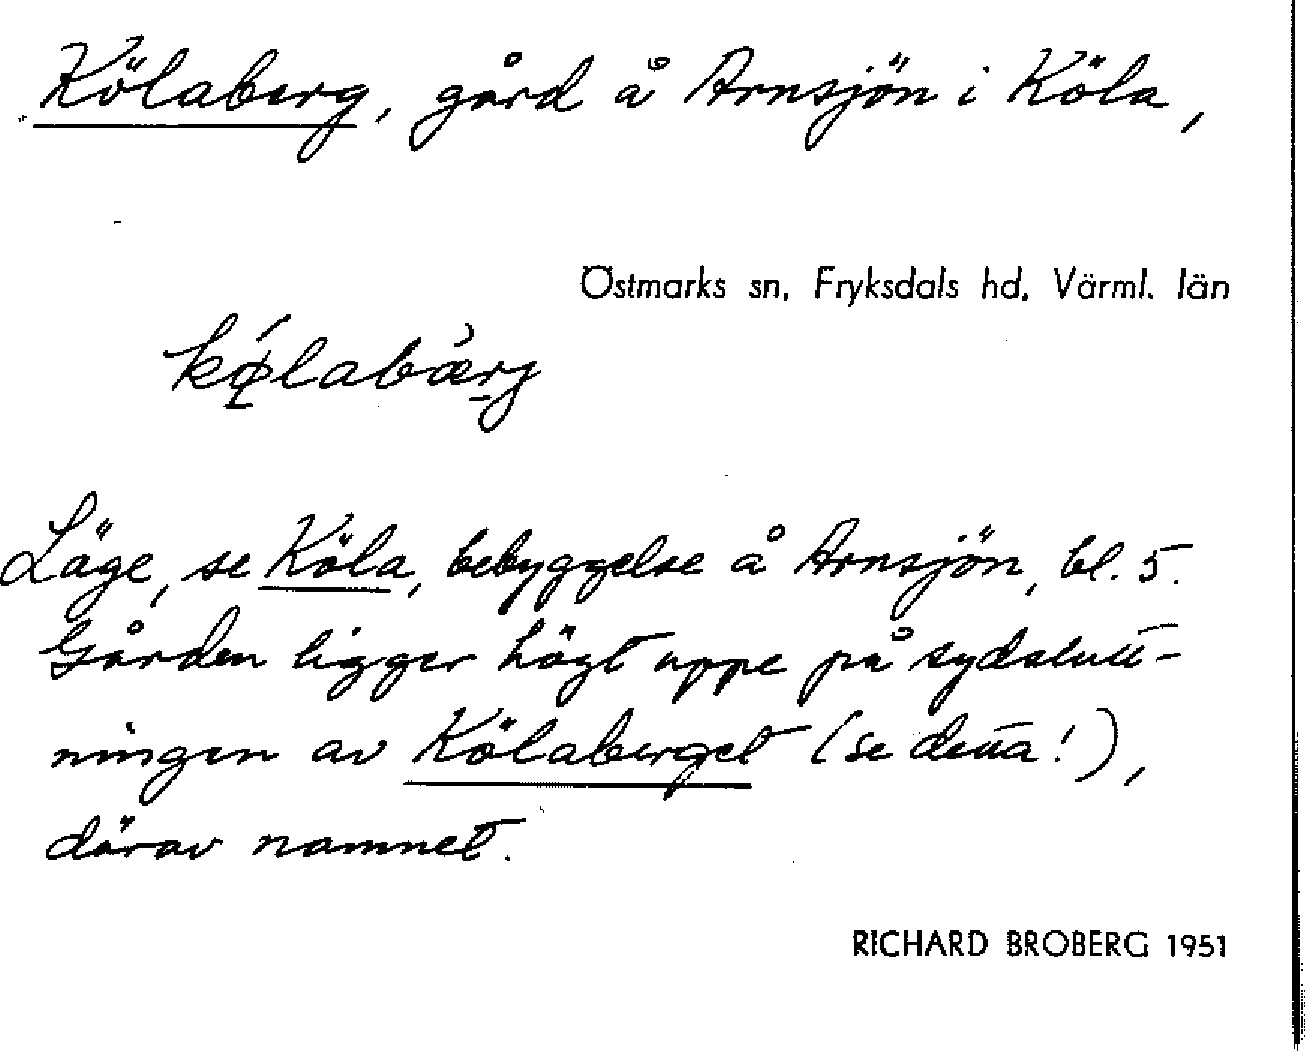 Kölaberg, gård å Arnsjön i Köla,
Östmarks sn, Fryksdals hd, Värml. län
kǿlabærj
Läge, se Köla, bebyggelse å Arnsjön, bl. 5.
Gården ligger högt uppe på sydslutt-
ningen av Kölaberget (se detta!),
därav namnet.
RICHARD BROBERG 1951